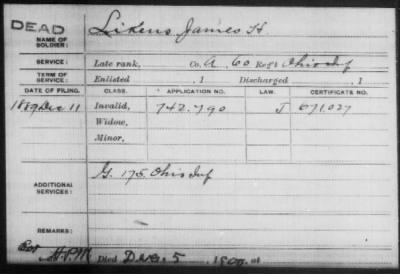 DEAD
NAME OF SOLDIER: Likens James H.
SERVICE: Late rank, Co. A, 60 Reg't Ohio Inf
TERM OF SERVICE: Enlisted , 1 Discharged , 1
DATE OF FILING. CLASS. APPLICATION NO. LAW. CERTIFICATE NO.
1889 Dec 11 Invalid, 742.790 J 671.027
Widow,
Minor,
ADDITIONAL SERVICES: G. 175 Ohio Inf
REMARKS:
Died Dec. 5, 1900, at